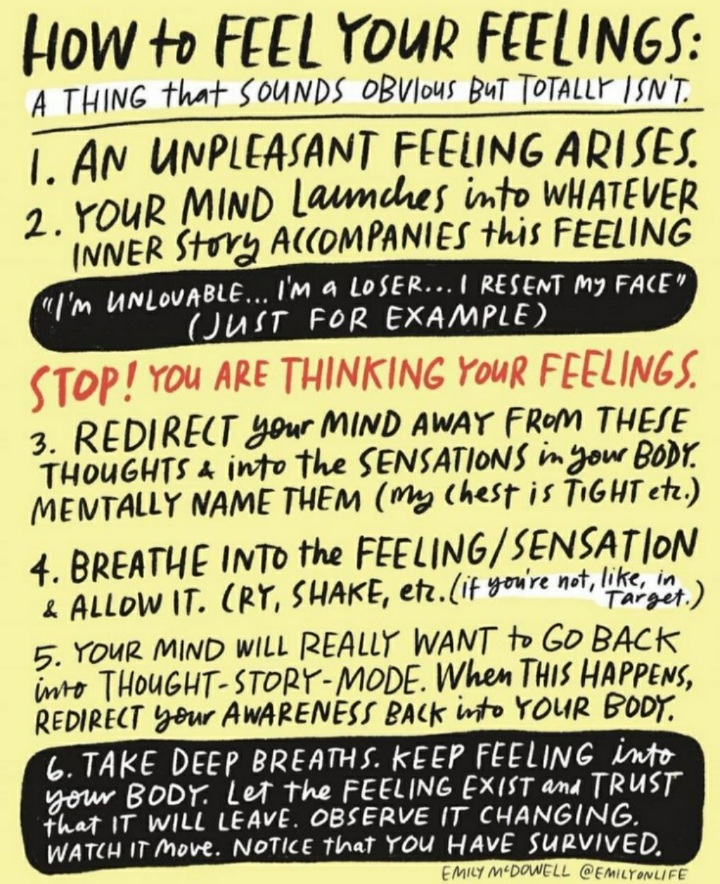 HOW to FEEL YOUR FEELINGS:
A THING that SOUNDS OBVIOUS BUT TOTALLY ISN'T.
1. AN UNPLEASANT FEELING ARISES.
2. YOUR MIND Launches into WHATEVER
INNER Story ACCOMPANIES this FEELING
"I'm UNLOVABLE... I'M a LOSER... I RESENT My FACE"
(JUST FOR EXAMPLE)
STOP! YOU ARE THINKING YOUR FEELINGS.
3. REDIRECT your MIND AWAY FROM THESE
THOUGHTS & into the SENSATIONS in your BODY.
MENTALLY NAME THEM (My Chest is TIGHT etc.)
4. BREATHE INTO the FEELING/SENSATION
& ALLOW IT. CRY, SHAKE, etc. (if you're not, like, in
Target.)
5. YOUR MIND WILL REALLY WANT to GO BACK
into THOUGHT-STORY-MODE. When THIS HAPPENS,
REDIRECT your AWARENESS BACK into YOUR BODY.
6. TAKE DEEP BREATHS. KEEP FEELING into
your BODY. Let the FEELING EXIST and TRUST
that IT WILL LEAVE. OBSERVE IT CHANGING.
WATCH IT Move. NOTICE that YOU HAVE SURVIVED.
EMILY McDOWELL @EMILYONLIFE